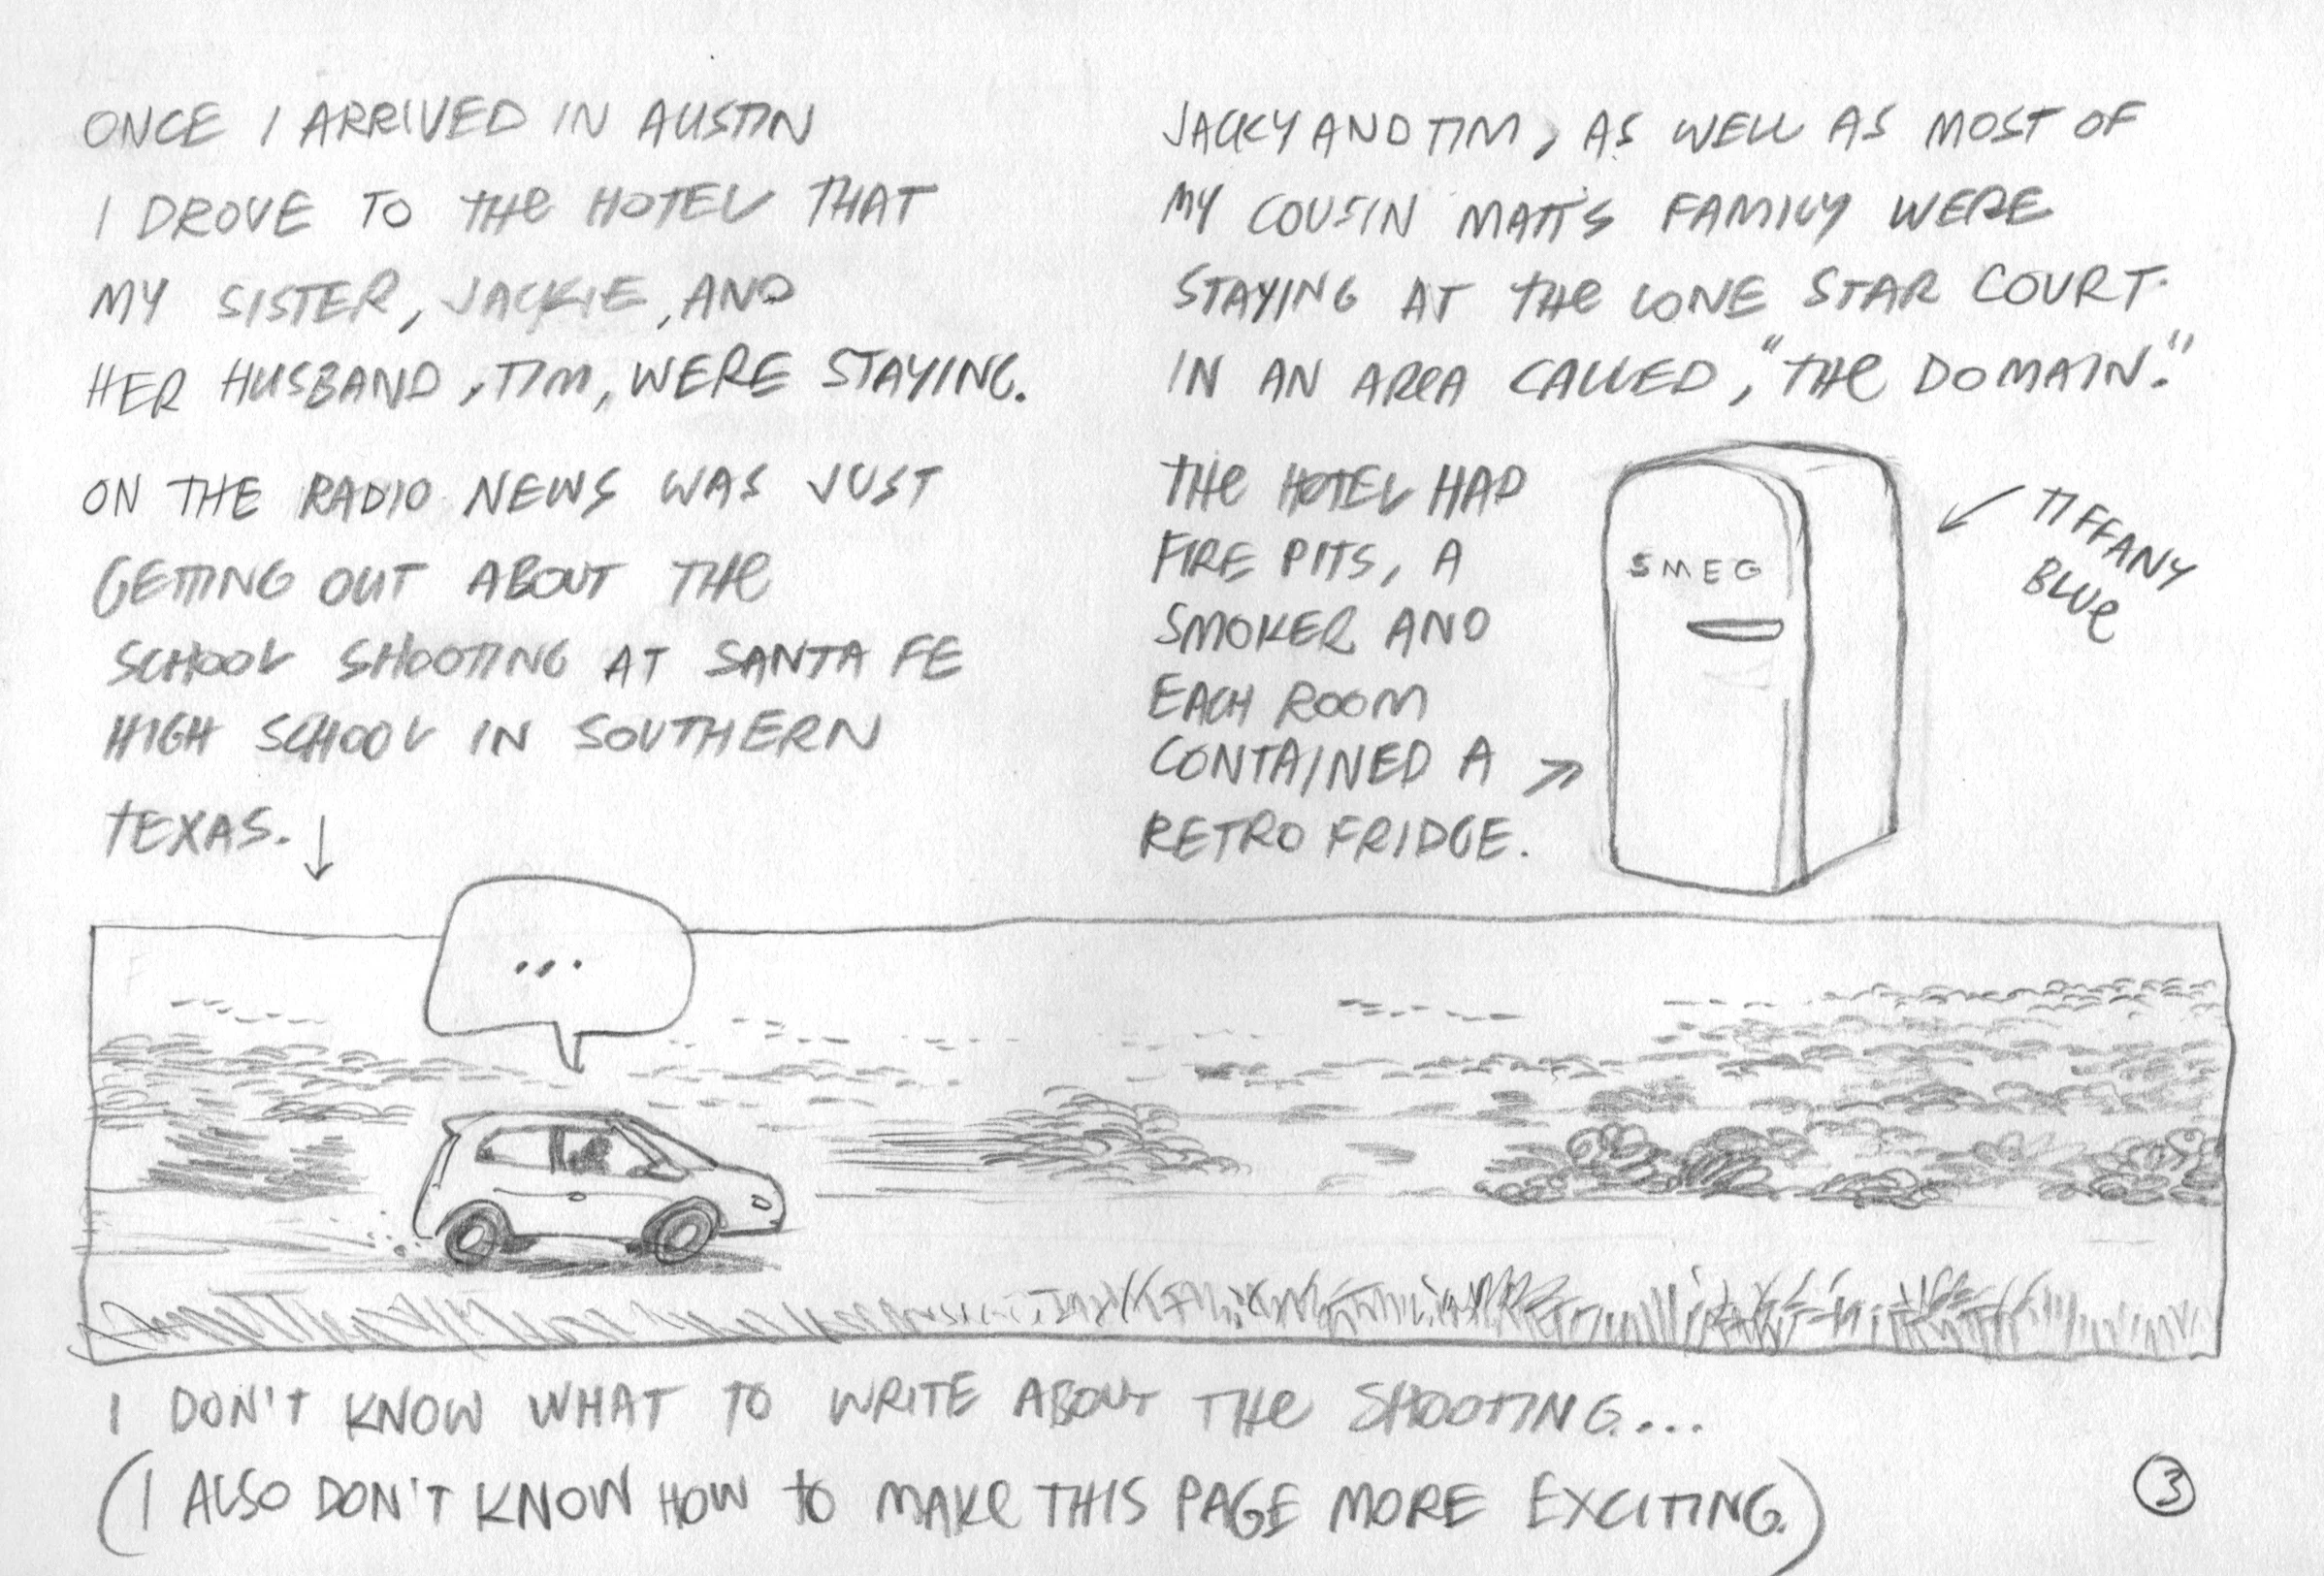 ONCE I ARRIVED IN AUSTIN
I DROVE TO THE HOTEL THAT
MY SISTER, JACKIE, AND
HER HUSBAND, TIM, WERE STAYING.
ON THE RADIO NEWS WAS JUST
GETTING OUT ABOUT THE
SCHOOL SHOOTING AT SANTA FE
HIGH SCHOOL IN SOUTHERN
TEXAS.
JACKY AND TIM, AS WELL AS MOST OF
MY COUSIN MATT'S FAMILY WERE
STAYING AT THE LONE STAR COURT.
IN AN AREA CALLED, "THE DOMAIN."
THE HOTEL HAD
FIRE PITS, A
SMOKER AND
EACH ROOM
CONTAINED A
RETRO FRIDGE.
SMEG
TIFFANY
BLUE
...
I DON'T KNOW WHAT TO WRITE ABOUT THE SHOOTING...
(I ALSO DON'T KNOW HOW TO MAKE THIS PAGE MORE EXCITING.)
3